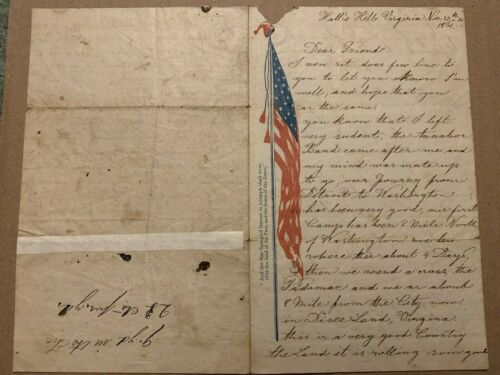 Hall's Hill Virginia Nov. 12th
1861
Dear Friend
I now sit does few line to
you to let you know I'm
well, and hope that you
ar the same.
you know that I left
very sudent, the Annabor
Band came after me and
my mind was mate up
to go, our Journey from
Detroit to Washington
has been very good our first
Camp has been 2 Mile North
of Washington
where ther about 4 Days,
then we wend a cross the
Padomac and we ar about
8 Mile from the City now
in Dixee Land, Virgina
this is a very good Country
the Land it is rolling
And the Star Spangled Banner in triumph shall wave,
O'er the land of the Free, and the home of the Brave.